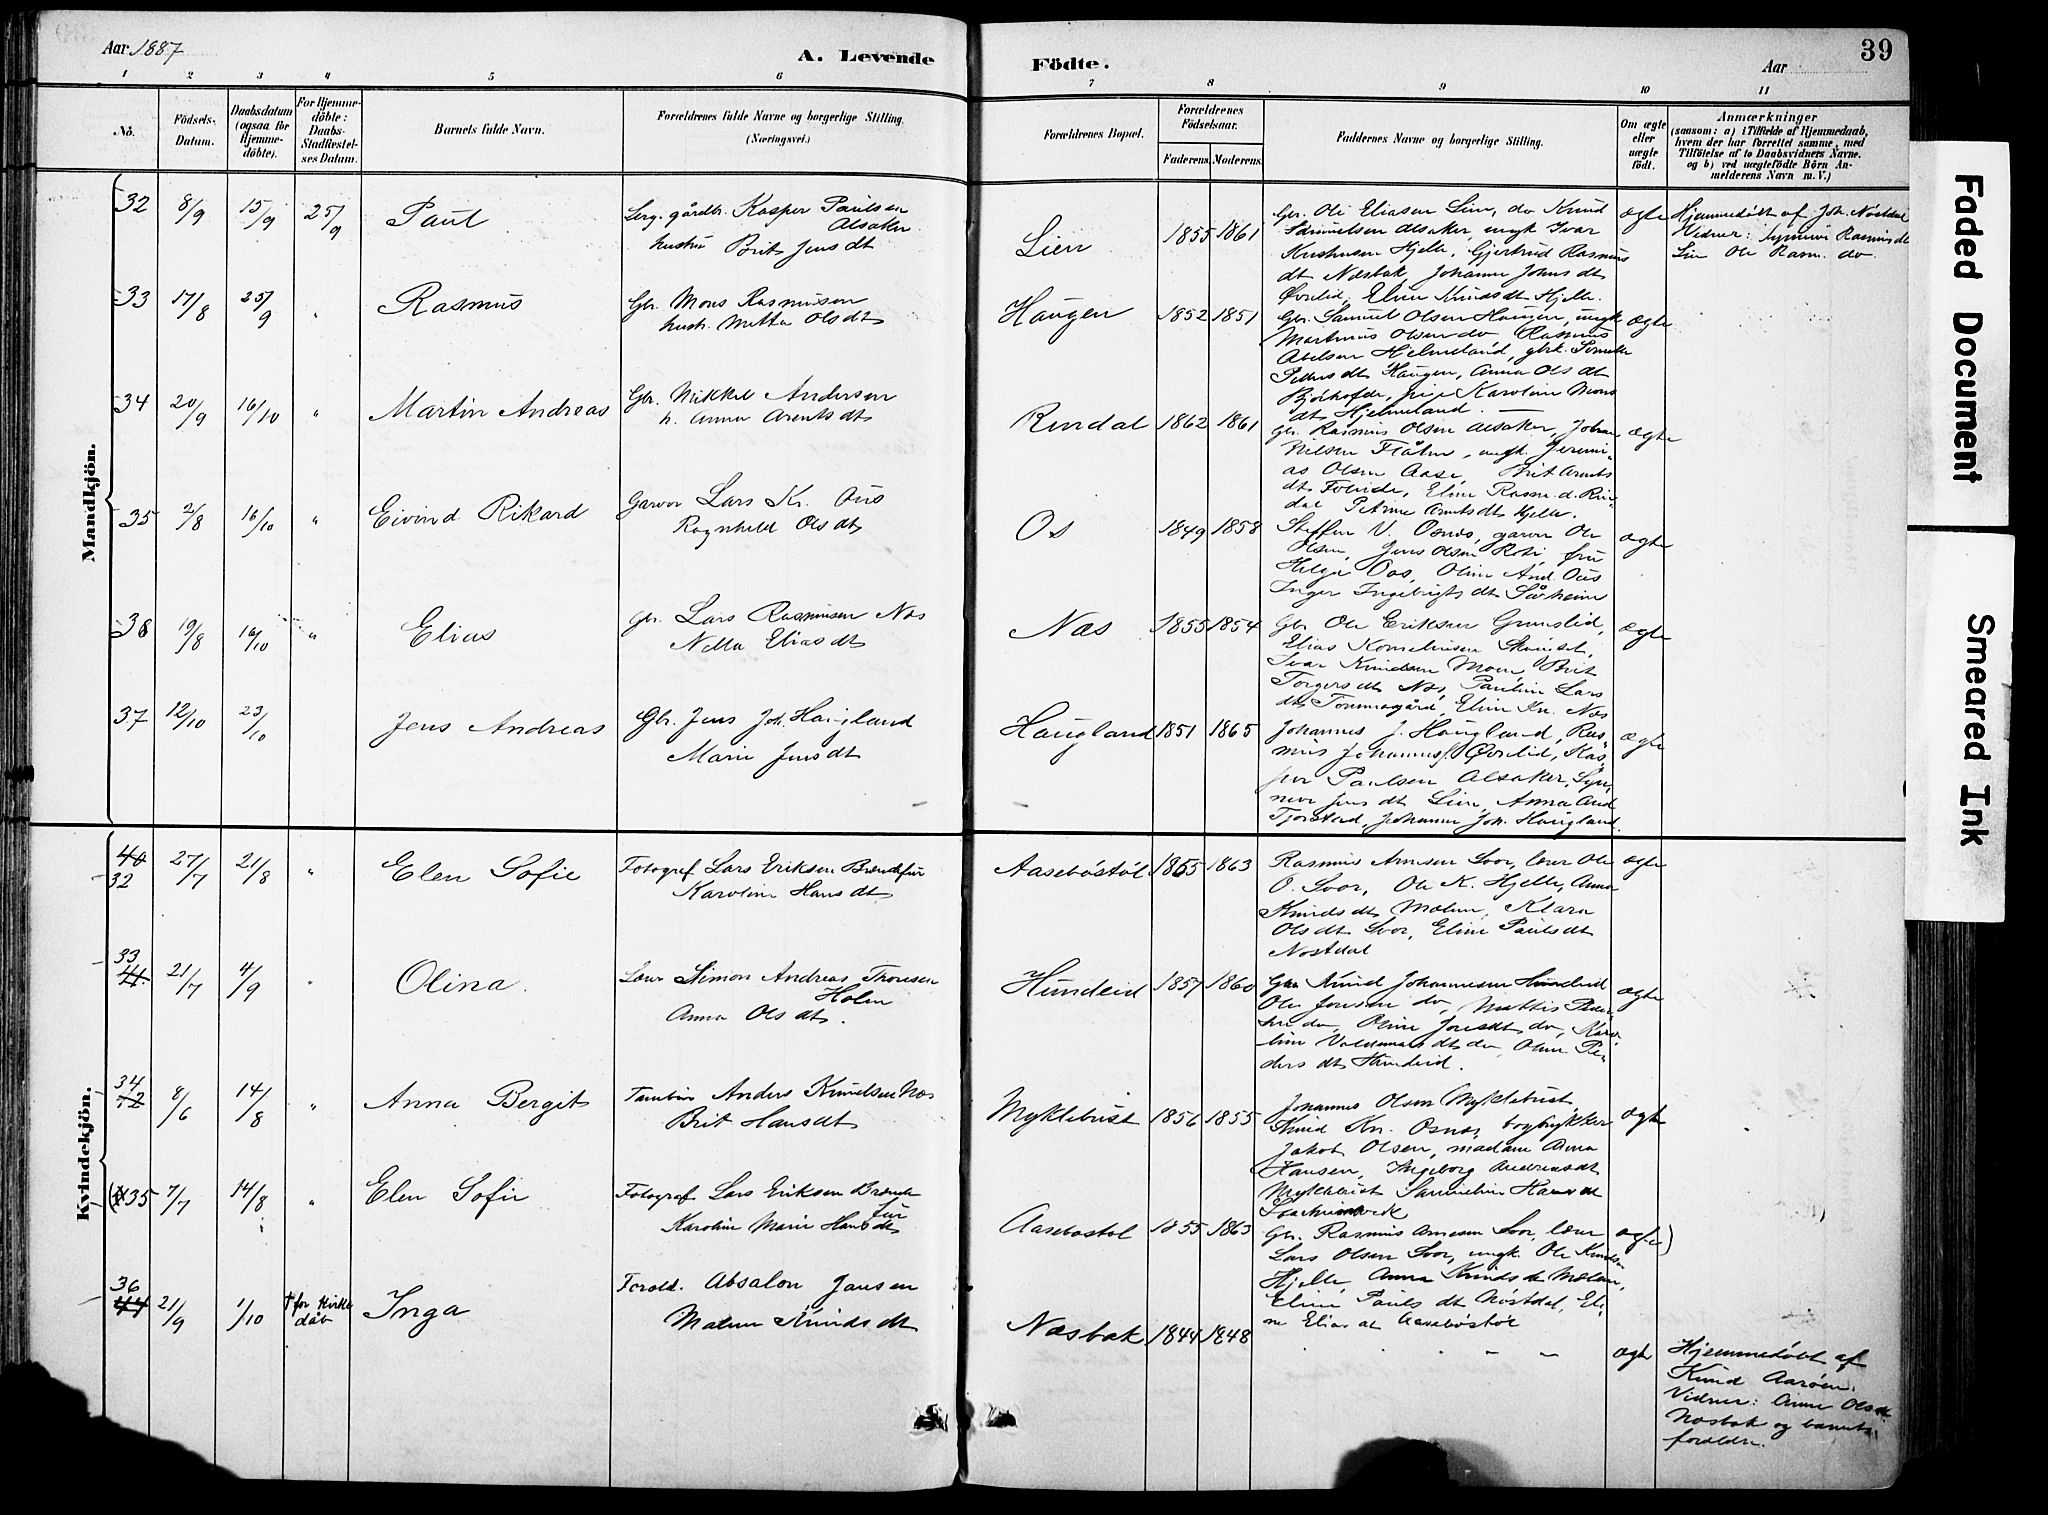 Aar 1887
A. Levende
Födte.
Aar
39
1 2 3 4 5 6 7 8 9 10 11
No.
Födsels-
Datum.
Daabsdatum
(ogsaa for
Hjemme-
döbte).
For Hjemme-
döbte:
Daabs-
Stadfæstel-
ses Datum.
Barnets fulde Navn.
Forældrenes fulde Navne og borgerlige Stilling.
(Næringsvei.)
Forældrenes Bopæl.
Forældrenes
Födselsaar.
Faderens.
Moderens.
Faddernes Navne og borgerlige Stilling.
Om ægte
eller
uægte
födt.
Anmærkninger
(saasom: a) i Tilfælde af Hjemmedaab,
hvem der har forrettet samme, med
Tilföielse af to Daabsvidners Navne.
og b) ved uægtefödte Börn An-
melderens Navn m. V.)
Mandkjön.
32 8/9 15/9 25/9 Paul
gårdbr. Kasper Paulsen
Alsaker
hustru Brit Jensdt
Lien 1855 1861
Gbr. Ole Eliasen Lien, do Knud
Samuelsen Alsaker, ungk Ivar
Hjelle, Gjertrud Rasmus
dt Næsbak, Johanne Johns dt
Øvrelid, Eline Knudsdt Hjelle.
ægte
Hjemmedöbt af Joh. Nöstdal
Vidner: Synneve Rasmusdt
Lien Ole Rasm. do
33 17/8 25/9 " Rasmus
Gbr. Mons Rasmusen
hustr. Mette Olsdt
Haugen 1852 1851
Gbr. Samuel Olsen Haugen, ungk
Martinus Olsen do, Rasmus
Abelsen Hjelmeland, gbrk.
Peders dt Haugen, Anna Ols dt
pige Karoline Mons
dt Hjelmeland.
ægte
34 20/9 16/10 " Martin Andreas
Gbr. Mikkel Andersen
h. Anna Arentsdt
Rindal 1862 1861
Gbr. Rasmus Olsen Alsaker, Johan
Nilsen Flåten, ungk. Jeremi-
as Olsen Aase, Brit Arents
dt Eline Rasm. d. Rin-
dal Petrine Arntsdt Hjelle.
ægte
35 2/8 16/10 " Eivind Rikard
Garver Lars Kr. Ous
Ragnhild Olsdt
Os 1849 1858
Steffen V. Osnes, garver Ole
Olsen, Jens Olsen Roti, fru
Helga Oos, Oline And. Ous
Inger Ingebrigts dt Sårheim
ægte
36 19/8 16/10 " Elias
Gbr. Lars Rasmusen Næs
Nella Eliasdt
Næs 1855 1854
Gbr. Ole Eriksen Grunslid,
Elias Korneliusen
Ivar Knudsen Moen, Brit
Torgersdt Næs, Pauline Lars
dt Tommasgård, Eline Kn. Næs
ægte
37 12/10 23/10 Jens Andreas
Gbr. Jens Joh. Haugland
Marie Jensdt
Haugland 1851 1865
Johannes J. Haugland, Ras-
mus Johannes Øvrelid, Kas-
per Paulsen Alsaker, Syn-
neve Jens dt Lien, Anna And
Tjorstad, Johanne Joh. Haugland.
ægte
Kvindekjön.
40
32 27/7 21/8 " Elen Sofie
Fotograf Lars Eriksen Brændsfur
Karoline Hansdt
Aasebøstöl 1855 1863
Rasmus Arnesen Svor, lærer Ole
O. Svor, Ole K. Hjelle, Anna
Knuds dt Mælen, Klara
Olsdt Svor, Eline Paulsdt
Nostdal
ægte
33
41 21/7 4/9 " Olina.
Lærer Simon Andreas Thoresen
Holm
Anna Olsdt.
Hundeid 1857 1860
Gbr Knud Johannesen Hundeid
Ole Jensen do, Mattis Peder-
sen do, Oline Jonsdt do, Karo-
line Valdemars dt do, Oline Pe-
ders dt Hundeid.
ægte
34
42 8/6 14/8 " Anna Bergit
Anders Knudsen Næs
Brit Hansdt
Myklebust 1856 1855
Johannes Olsen Myklebust
Knud Kn. Osnes, bogtrykker
Jakob Olsen, madam Anna
Hansen, Ingeborg Andreasdt
Myklebust Sammeline Hansdt
ægte
35 7/7 14/8 " Elen Sofie
Fotograf Lars Eriksen Brænds
fur
Karoline Marie Hansdt
Aasebøstol 1855 1863
Gbr. Rasmus Arnesen Svor, lærer
Lars Olsen Svor, ungk. Ole Knudsen
Hjelle, Anna Knuds dt Mælen,
Eline Pauls dt Nöstdal, Eli-
ne Elias dt Aaseböstöl
ægte)
36
44 21/9 1/10 † før kirke
dåb Inga
Forold. Absalon Jansen
Malene Knudsdt
Næsbak 1844 1848
ægte
Hjemmedöbt af
Knud Aaröen.
Vidner: Anne Olsdt
Næsbak og barnets
forældre.
Faded Document
Smeared Ink